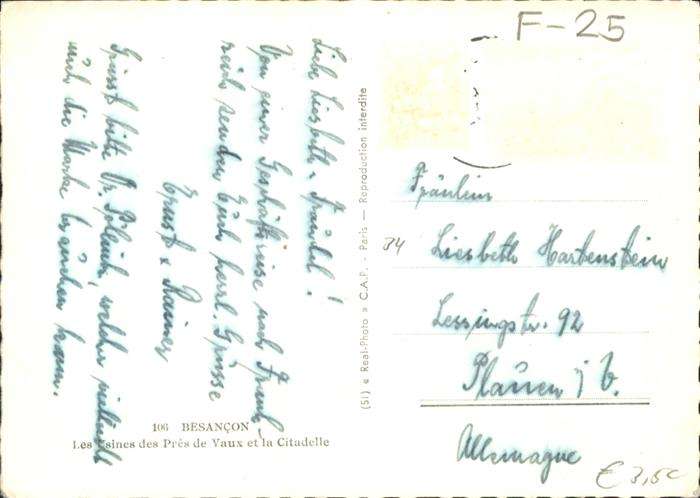 F-25
Liebe Liesbeth u. Traudel!
Von einer Geschäftsreise nach Frank-
reich senden Euch herzl. Grüsse
Ernst u. Rainer
Grüsst bitte Dr. welcher vielleicht
auch die Marke brauchen kann.
(51) « Real-Photo » C.A.P. - Paris — Reproduction interdite
Fräulein
34
Liesbeth Hartenstein
Lessingstr. 92
Plauen i/V.
Allemagne
106 BESANÇON
Les Usines des Prés de Vaux et la Citadelle
€ 3,50